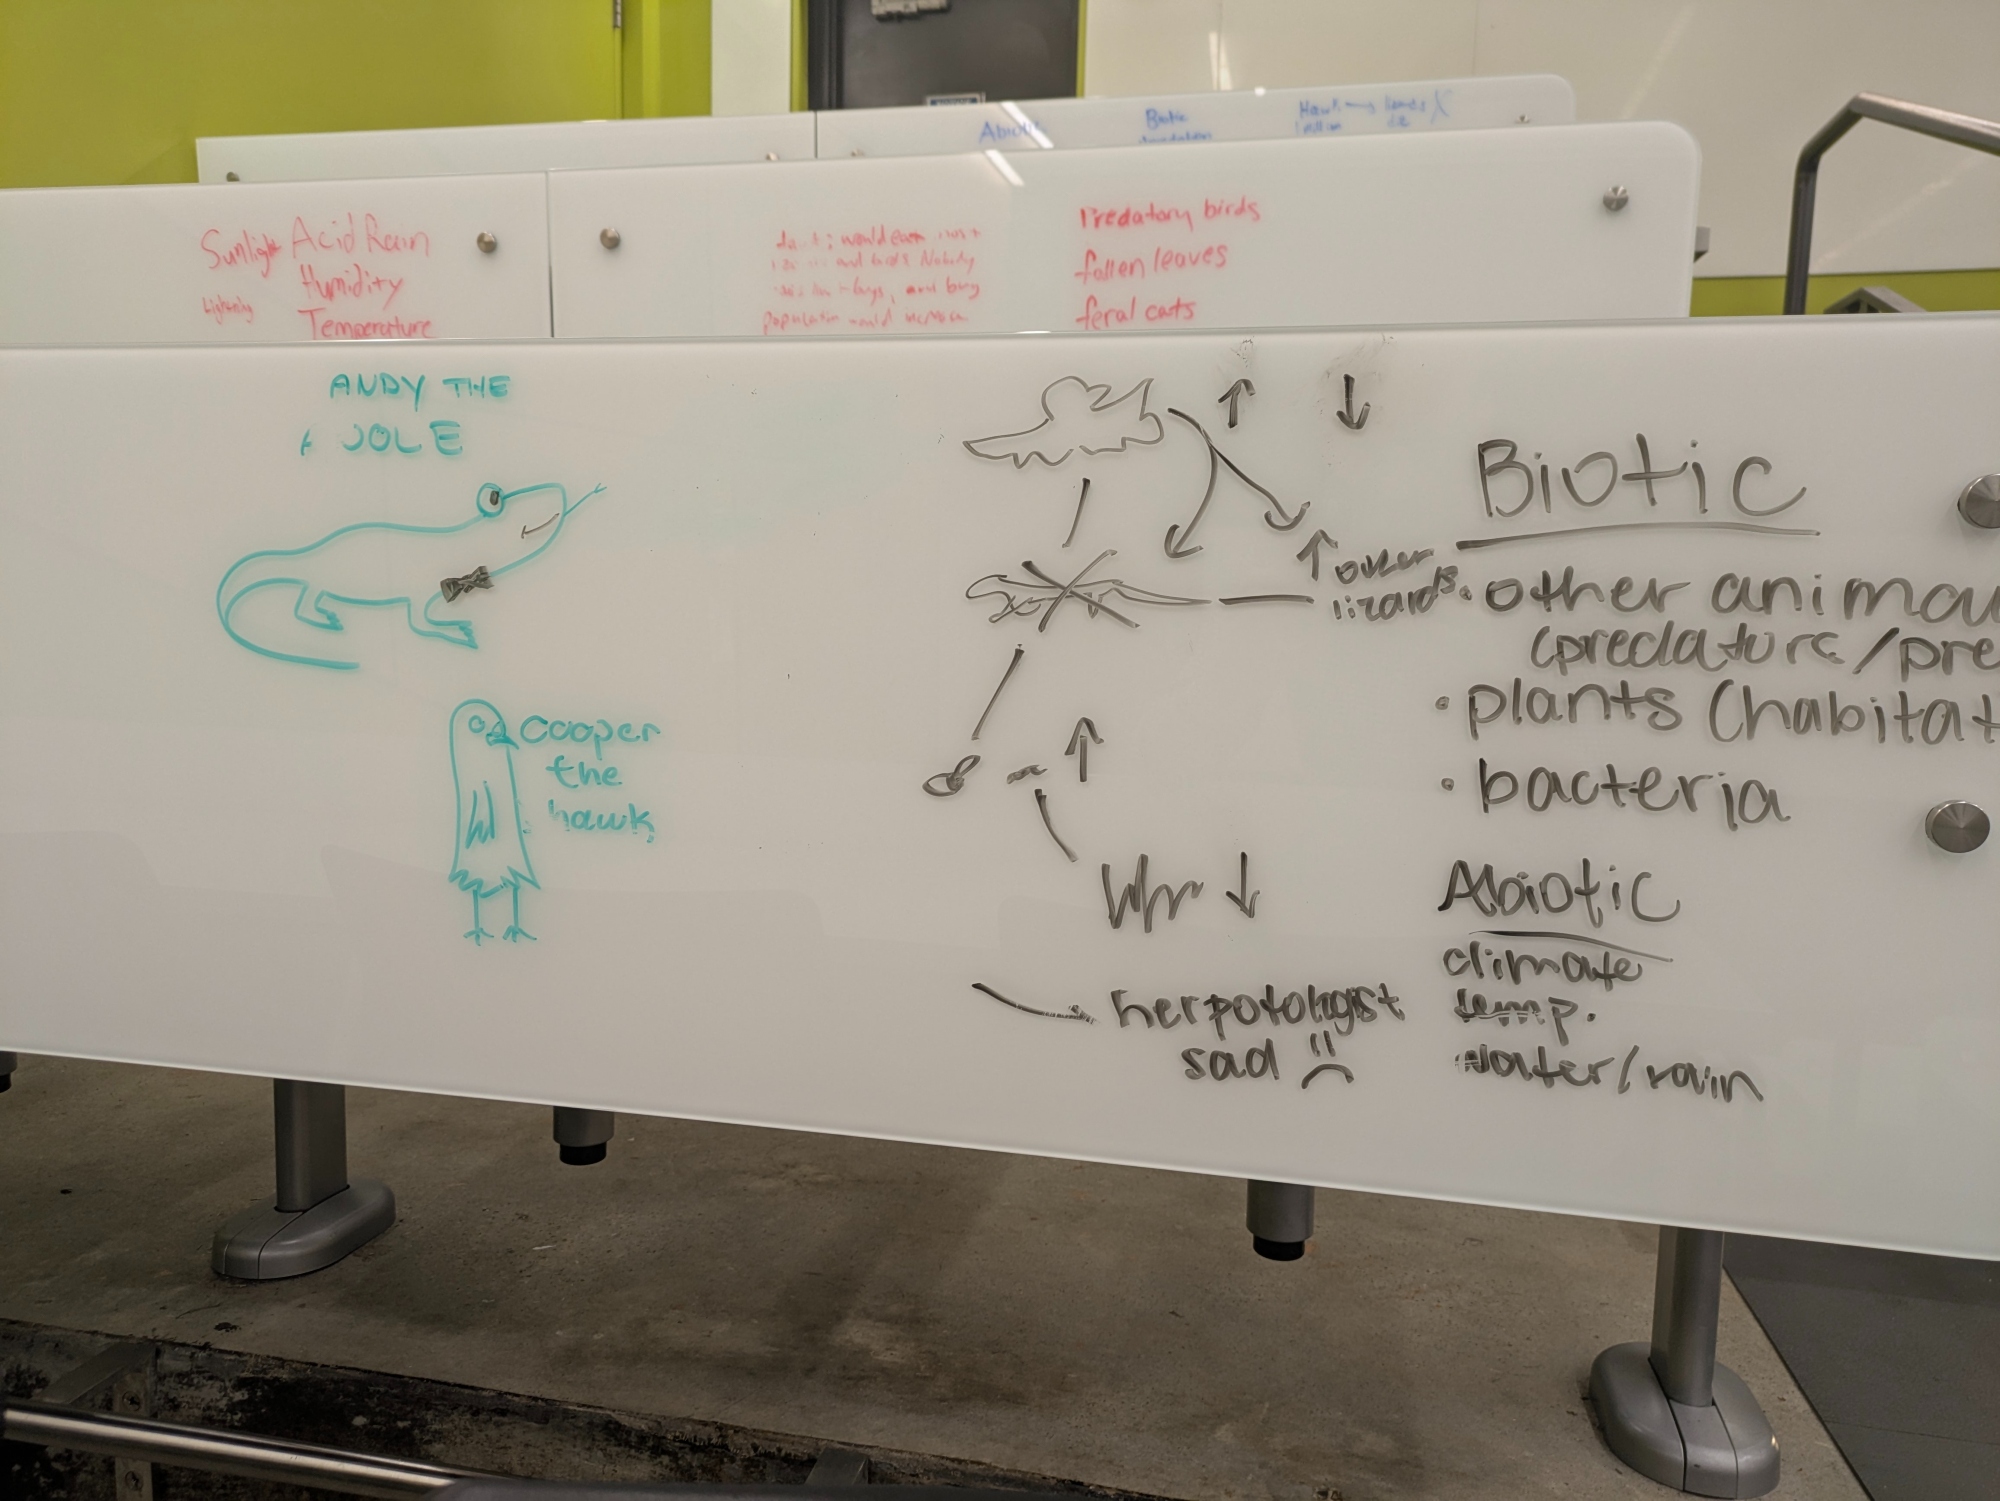 Abiotic
Biotic
Hawk → lizards X
Sunlight Acid Rain
Humidity
Lightning
Temperature
would earn
and birds Nobody
bugs, and bug
population would increase
Predatory birds
fallen leaves
feral cats
ANDY THE
↑ ↓
Biotic
↑ other
lizards
• other anima
(predators/pre
• plants (habitat
• bacteria
cooper
the
hawk
↑
↓
Abiotic
climate
temp.
water/rain
→ herpotologist
sad